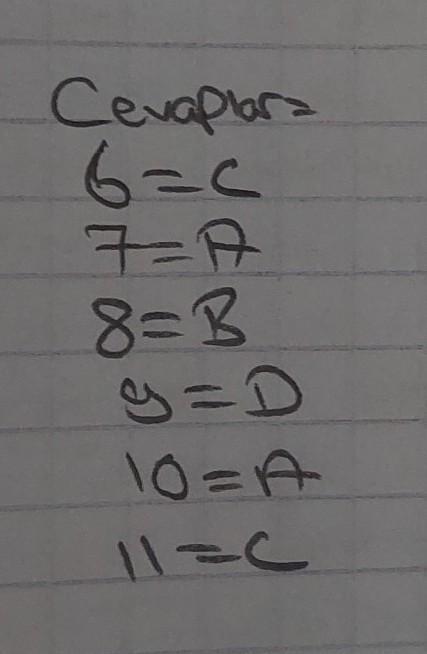 Cevaplar=
6=C
7=A
8=B
9=D
10=A
11=C